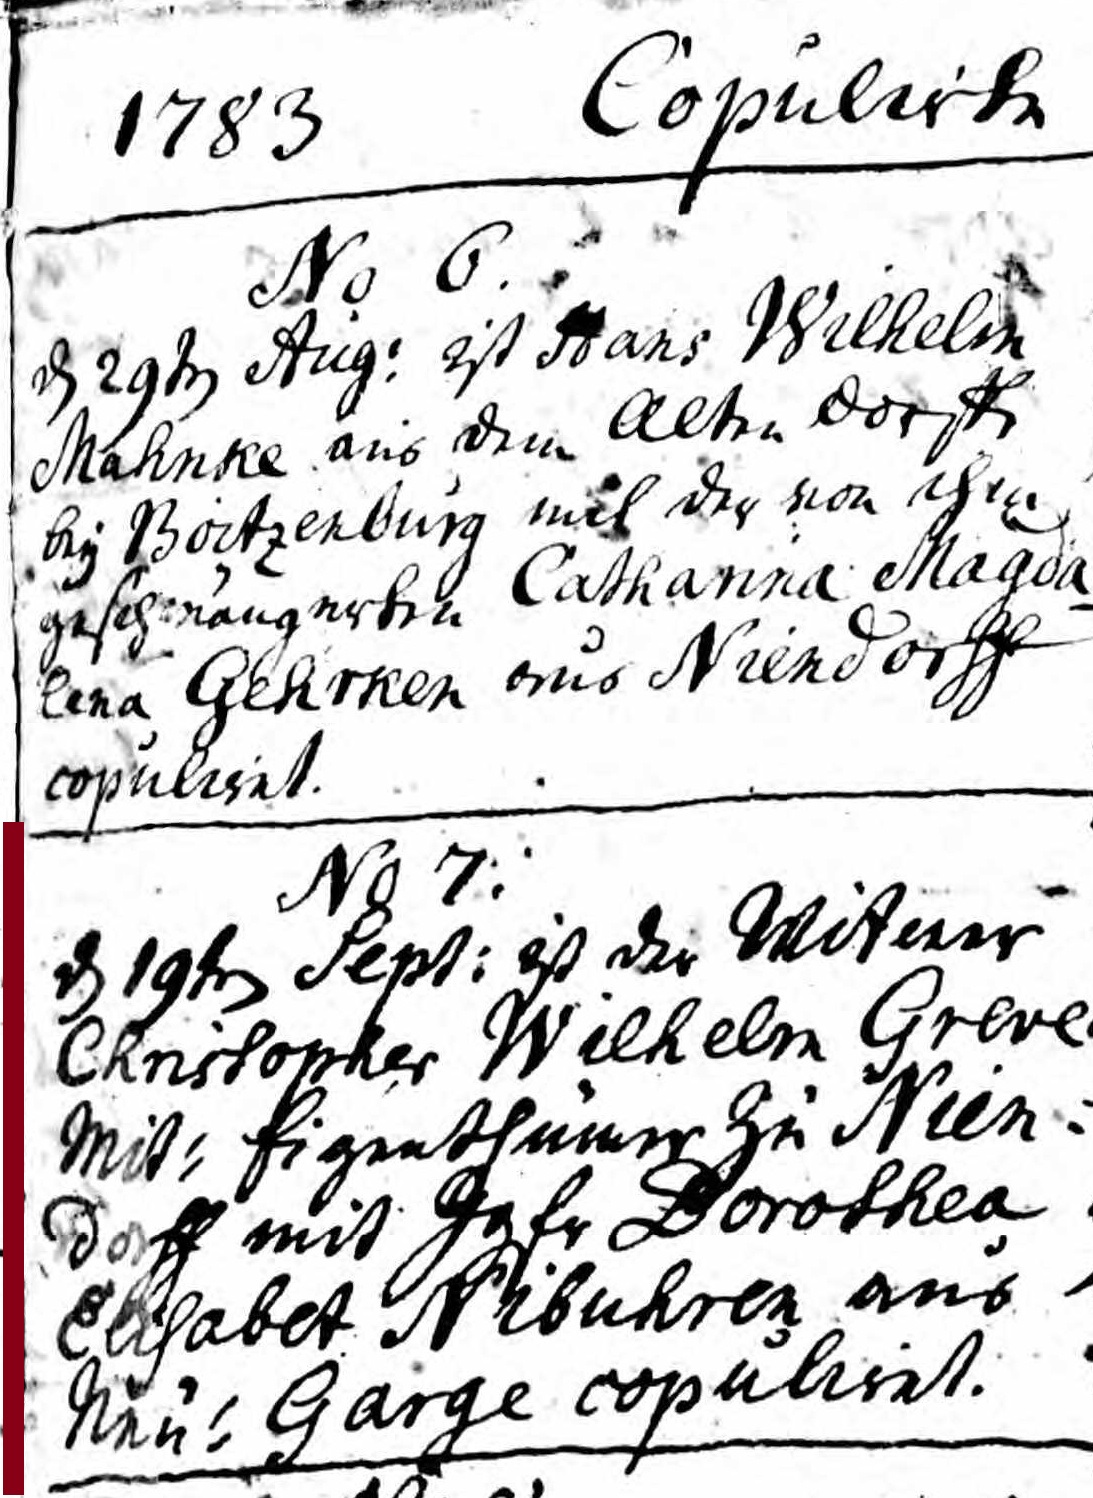 1783 Copulirte
No 6.
d 29ten Aug: ist Hans Wilhelm
Mahnke aus dem Alten Dorffe
bey Boitzenburg mit der von ihm
geschwängerten Catharina Magda
lena Gehrken aus Niendorff
copuliret.
No 7:
d 19ten Sept: ist der Witwer
Christopher Wilhelm Greve
Mit: Eigenthümer zu Nien-
dorff mit Jgfr Dorothea
Elisabet Nibuhren aus
Neu: Garge copuliret.